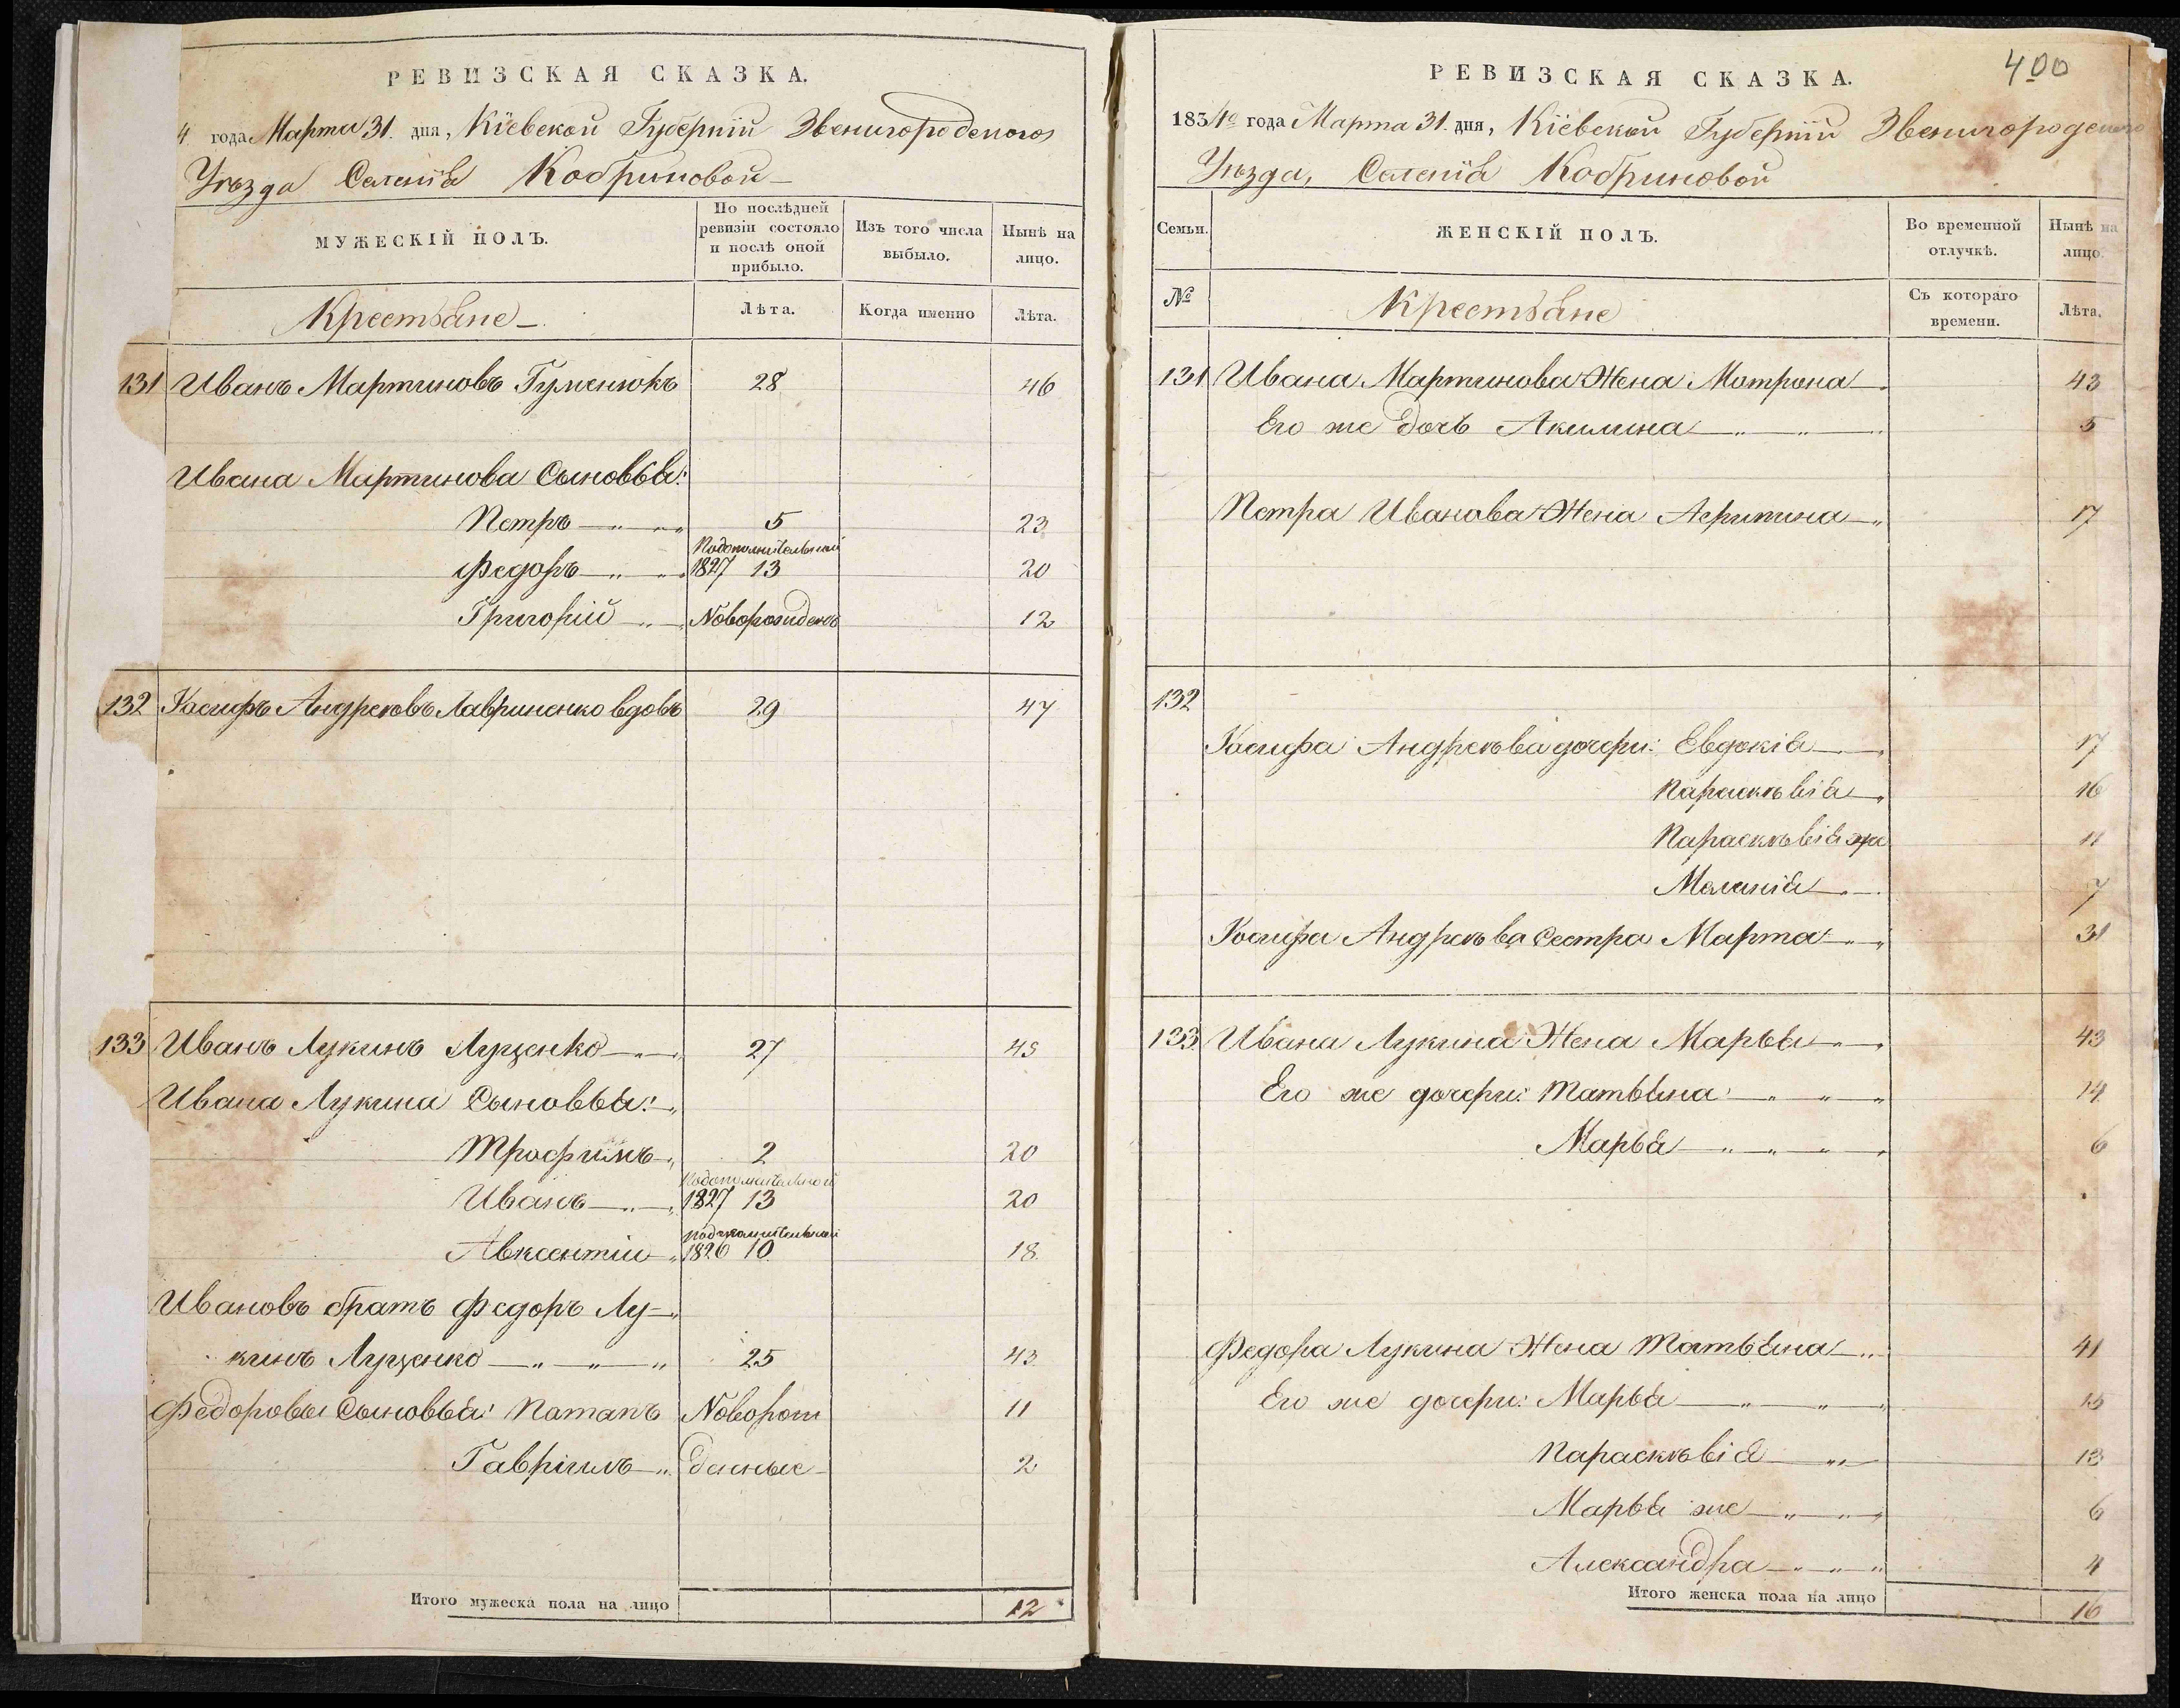 РЕВИЗСКАЯ СКАЗКА.
4 года Марта 31. дня, Кіевской Губерніи Звенигородскаго
Уѣзда Селенія Кобриновой
МУЖЕСКІЙ ПОЛЪ.
По послѣдней ревизіи состояло и послѣ оной прибыло.
Изъ того числа выбыло.
Нынѣ на лицо.
Крестьяне
Лѣта.
Когда именно
Лѣта.
131 Иванъ Мартиновъ Гуменюкъ 28 46
Ивана Мартинова Сыновья:
Петръ 5 23
Подополнительной
Федоръ 1827 13 20
Григорій Новорожденъ 12
132 Іосифъ Андреевъ Лавриненко вдовъ 29 47
133 Иванъ Лукинъ Луценко 27 45
Ивана Лукина Сыновья:
Трофимъ 2 20
Подополнительной
Иванъ 1827 13 20
подополнительной
Авксентій 1826 10 18
Ивановъ братъ Федоръ Лу-
кинъ Луценко 25 43
Федоровы Сыновья: Потапъ Неворож 11
Гавріилъ денные 2
Итого мужеска пола на лицо 12
400
РЕВИЗСКАЯ СКАЗКА.
1834го года Марта 31. дня, Кіевской Губерніи Звенигородскаго
Уѣзда, Селенія Кобриновой
Семьи.
ЖЕНСКІЙ ПОЛЪ.
Во временной отлучкѣ.
Нынѣ на лицо.
№
Крестьяне
Съ котораго времени.
Лѣта.
131 Ивана Мартинова Жена Мотрона 43
Его же дочь Акилина 5
Петра Иванова Жена 17
132
Іосифа Андреева дочери: Евдокія 17
Параскѣвія 16
Параскѣвія же 11
Меланія 7
Іосифа Андреева Сестра Марта 31
133 Ивана Лукина Жена Марья 43
Его же дочери: Татьяна 14
Марья 6
Федора Лукина Жена Татьяна 41
Его же дочери: Марья 15
Параскѣвія 13
Марья же 6
Александра 4
Итого женска пола на лицо 16